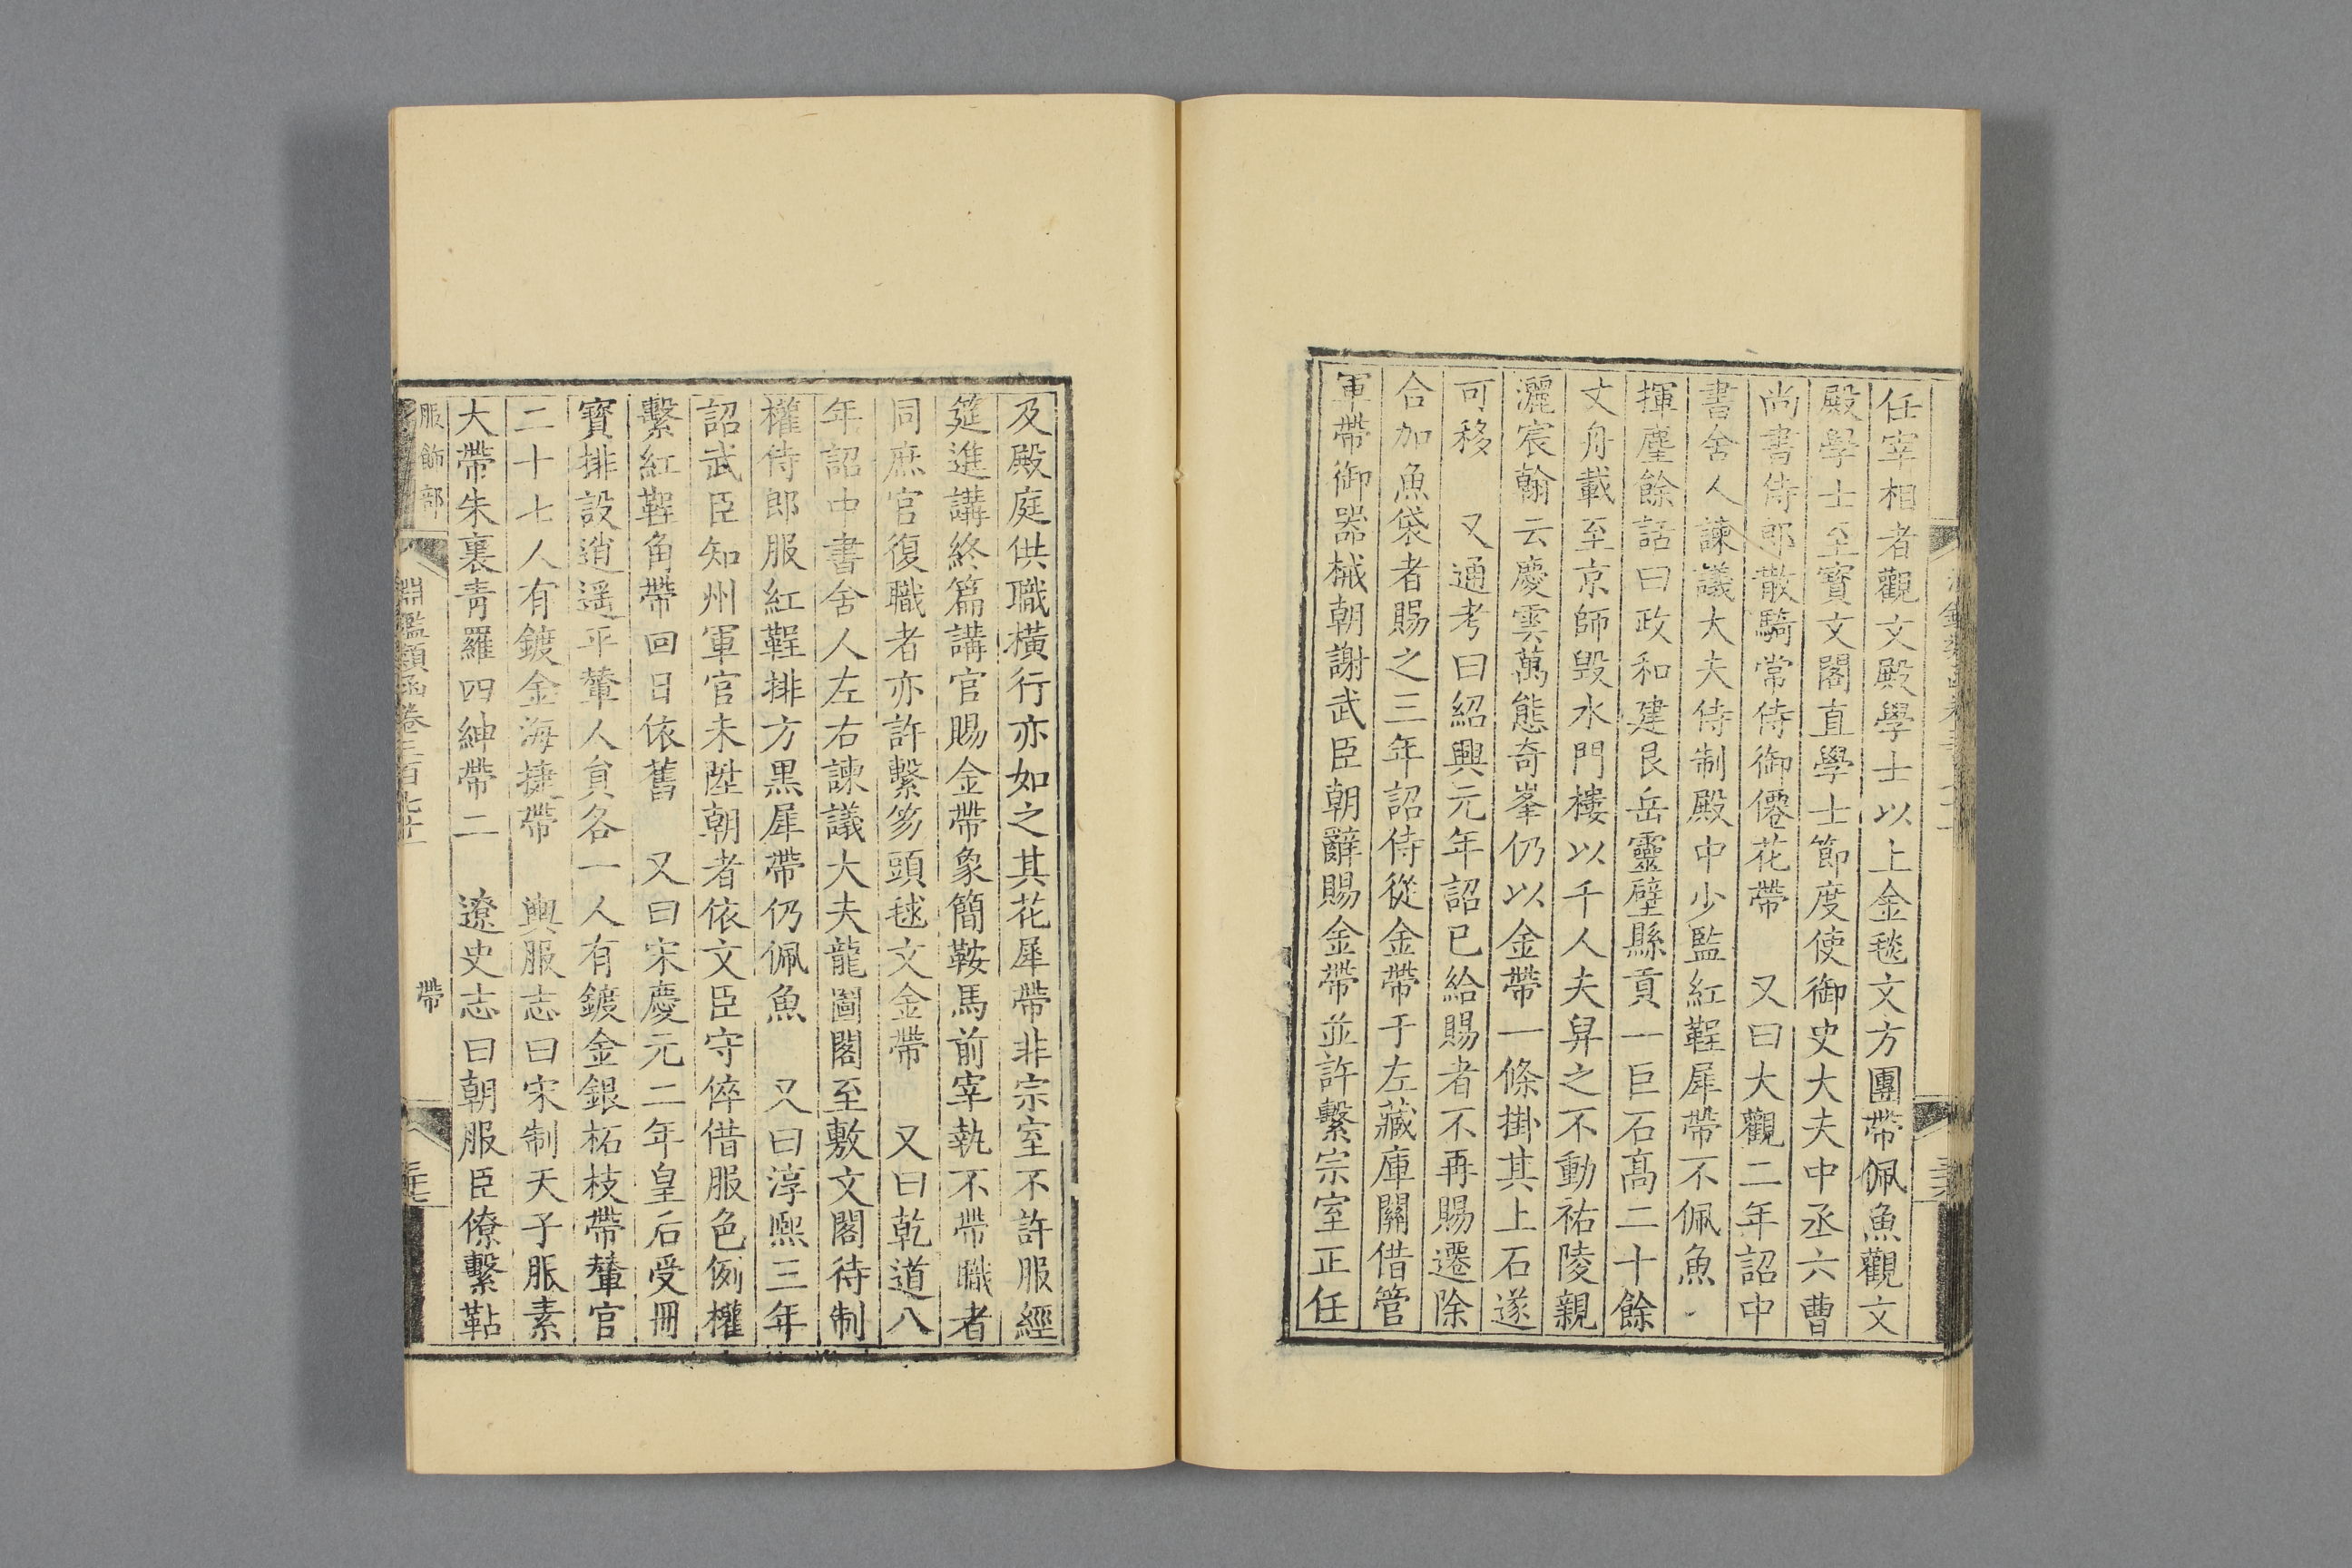 任宰相者觀文殿學士以上金毬文方團帶佩魚觀文
殿學士至寳文閣直學士節度使御史大夫中丞六曹
尚書侍郎散騎常侍御僊花帶　又曰大觀二年詔中
書舍人諫議大夫侍制殿中少監紅鞓犀帶不佩魚
揮塵餘話曰政和建艮岳靈壁縣貢一巨石髙二十餘
文舟載至京師毁水門樓以千人夫舁之不動祐陵親
灑宸翰云慶雲萬態奇峯仍以金帶一條掛其上石遂
可移　又通考曰紹興元年詔已給賜者不再賜遷除
合加魚袋者賜之三年詔侍從金帶于左藏庫關借管
軍帶御器械朝謝武臣朝辭賜金帶並許繫宗室正任
及殿庭供職橫行亦如之其花犀帶非宗室不許服經
筵進講終篇講官賜金帶象簡鞍馬前宰執不帶職者
同庶官復職者亦許繫笏頭毬文金帶　又曰乾道八
年詔中書舍人左右諫議大夫龍圖閣至敷文閣待制
權侍郎服紅鞓排方黒犀帶仍佩魚　又曰淳熈三年
詔武臣知州軍官未陞朝者依文臣守倅借服色例權
繫紅鞓角帶回日依舊　又曰宋慶元二年皇后受冊
寳排設逍遥平輦人貟各一人有鍍金銀柘枝帶輦官
二十七人有鍍金海捷帶　輿服志曰宋制天子服素
大帶朱裏青羅四紳帶二　遼史志曰朝服臣僚繫鞊
服飾部　淵鑑類函卷三百七十一　帶